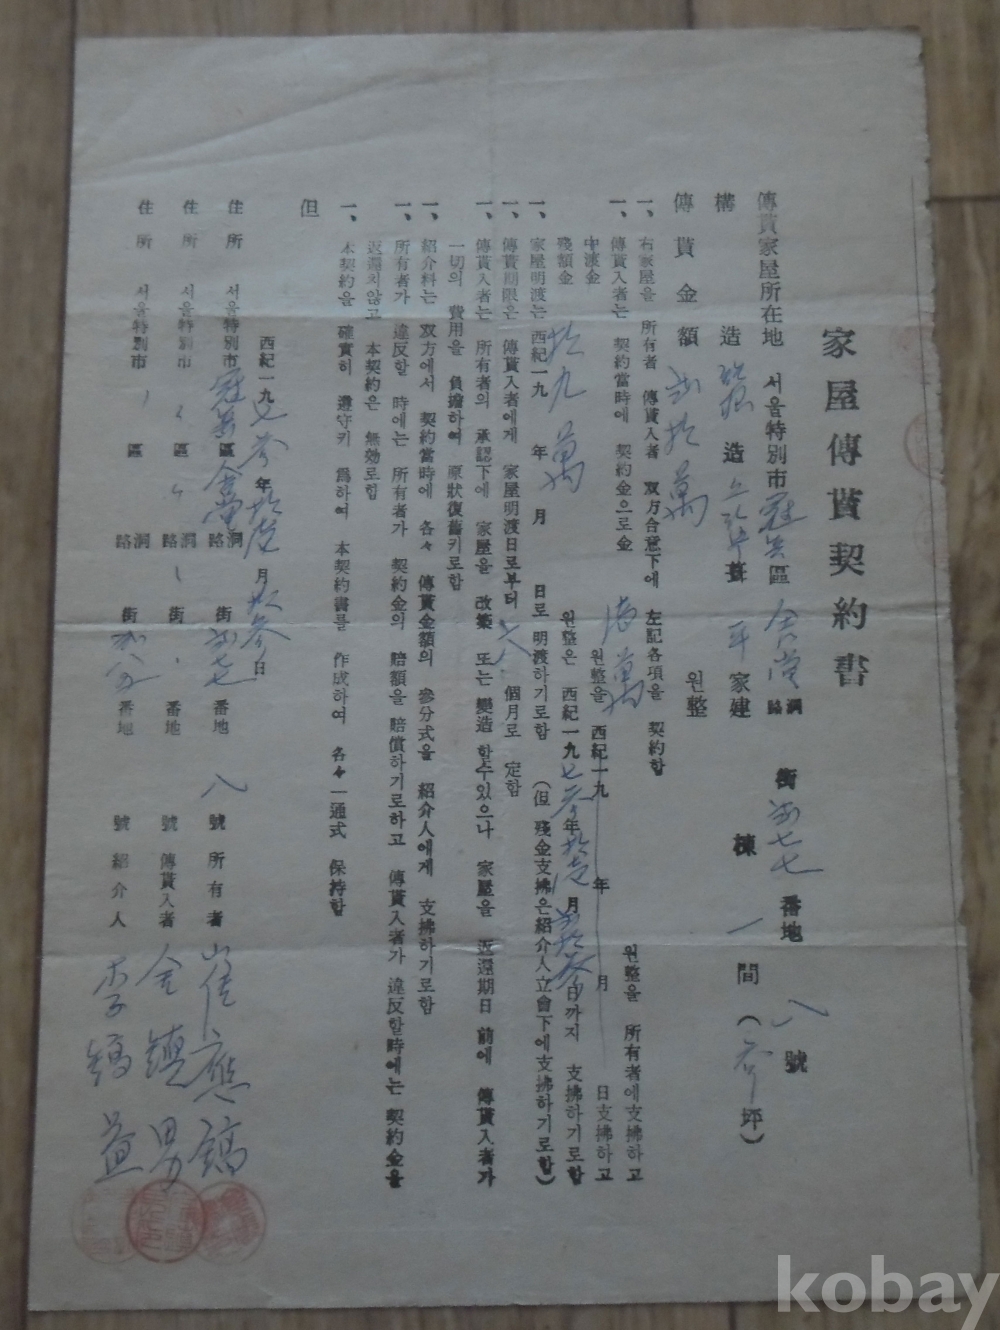 家屋傳貰契約書
傳貰家屋所在地 서울特別市 冠岳區 舍堂洞路 街 貳七七 番地 八 號
構造 造 葺 平家建 棟 一 間 ( 坪)
傳貰金額 貳拾萬 원整
一、右家屋을 所有者 傳貰入者 双方合意下에 左記各項을 契約함
一、傳貰入者는 契約當時에 契約金으로金 壹萬 원整을 所有者에支拂하고
中渡金 원整을 西紀一九 年 月 日支拂하고
殘額金 拾九萬 원整은 西紀一九七參年拾壹月貳拾參日까지 支拂하기로함
一、家屋明渡는 西紀一九 年 月 日로 明渡하기로함 (但 殘金支拂은紹介人立會下에支拂하기로함)
一、傳貰期限은 傳貰入者에게 家屋明渡日로부터 六 個月로 定함
一、傳貰入者는 所有者의 承認下에 家屋을 改築 또는 變造할수있으나 家屋을 返還期日前에 傳貰入者가
一切의 費用을 負擔하여 原狀復舊키로함
一、紹介料는 双方에서 契約當時에 各々 傳貰金額의 參分式을 紹介人에게 支拂하기로함
一、所有者가 違反할 時에는 所有者가 契約金의 賠額을 賠償하기로하고 傳貰入者가 違反할時에는 契約金을
返還치않고 本契約은 無効로함
一、本契約을 確實히 遵守키 爲하여 本契約書를 作成하여 各々一通式 保持함
但
西紀一九七參年拾壹月拾參日
住所 서울特別市 冠岳區 舍堂洞路 街 貳七七 番地 八 號 所有者 崔應鎬
住所 서울特別市 區 洞路 街 番地 號 傳貰入者 金鎭男
住所 서울特別市 區 洞路 街 番地 號 紹介人 李 益
kobay